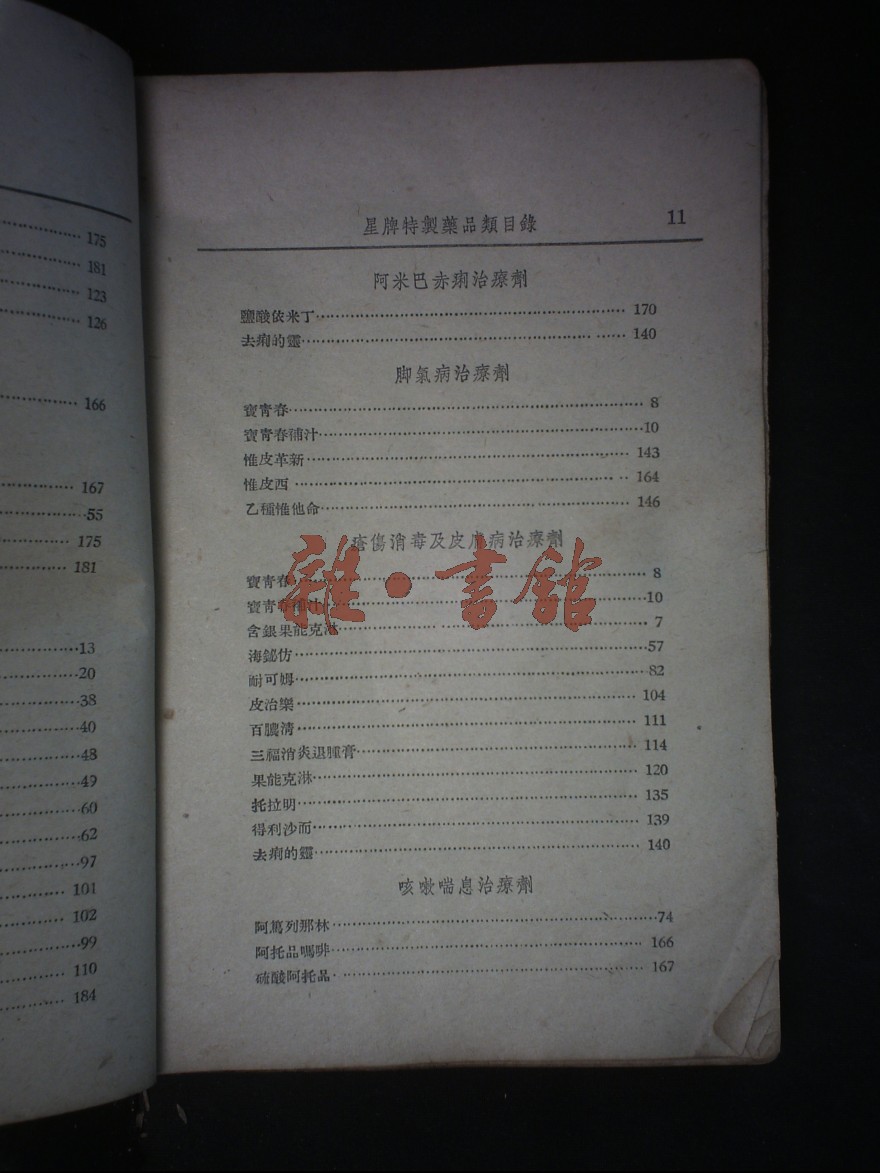 175
181
123
126
166
167
55
175
181
13
20
38
40
48
49
60
62
97
101
102
99
110
184
星牌特製藥品類目錄 11
阿米巴赤痢治療劑
鹽酸依米丁 170
去痢的靈 140
脚氣病治療劑
寶青春 8
寶青春補汁 10
惟皮革新 143
惟皮西 164
乙種惟他命 146
瘡傷消毒及皮膚病治療劑
寶青春 8
寶青春補汁 10
含銀果能克淋 7
海鉍仿 57
耐可姆 82
皮治樂 104
百膿清 111
三福消炎退腫膏 114
果能克淋 120
托拉明 135
得利沙而 139
去痢的靈 140
咳嗽喘息治療劑
阿篤列那林 74
阿托品嗎啡 166
硫酸阿托品 167
雜·書館